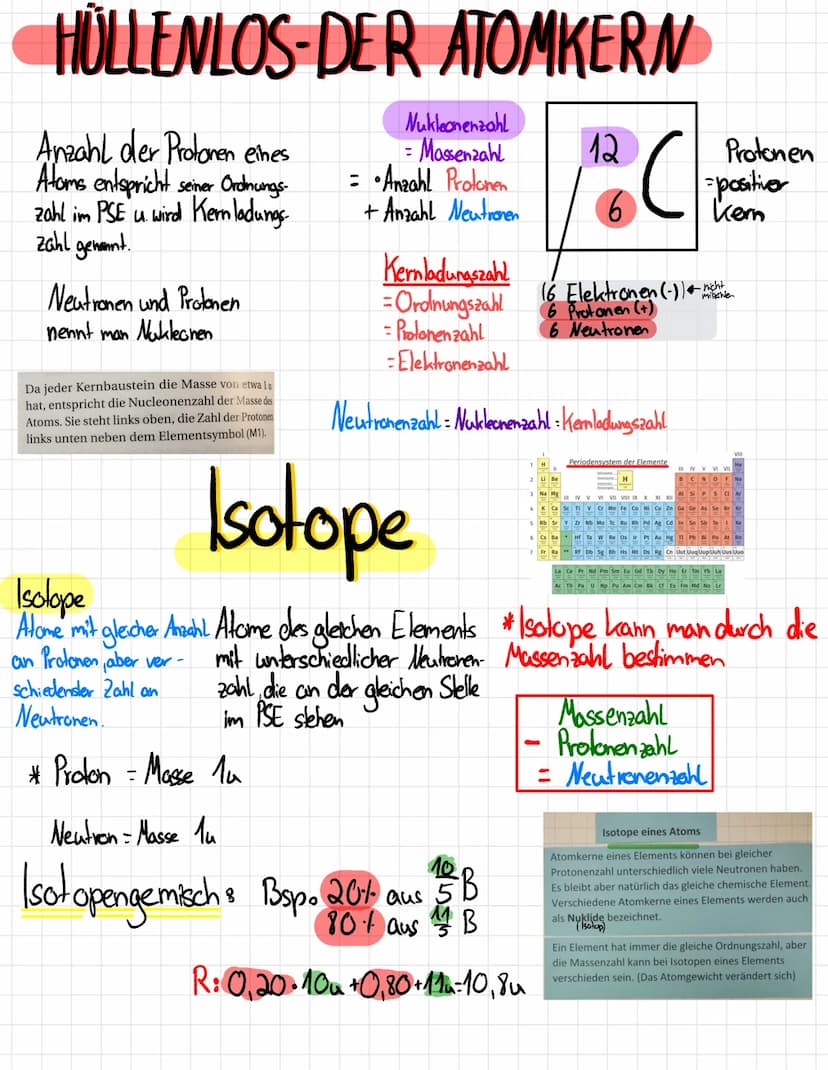 HÜLLENLOS-DER ATOMKERN
Anzahl der Protonen eines
Atoms entspricht seiner Ordnungs-
zahl im PSE u. wird Kernladungs-
zahl genannt.
Neutronen und Protonen
nennt man Nukleonen
Nukleonenzahl
= Massenzahl
= •Anzahl Protonen
+ Anzahl Neutronen
Kernladungszahl
= Ordnungszahl
= Protonenzahl
= Elektronenzahl
12
6
C
Protonen
=positiver
Kern
(6 Elektronen (-)) ← nicht
6 Protonen (+)
6 Neutronen
Da jeder Kernbaustein die Masse von etwa 1u
hat, entspricht die Nucleonenzahl der Masse des
Atoms. Sie steht links oben, die Zahl der Protonen
links unten neben dem Elementsymbol (M1).
Neutronenzahl = Nukleonenzahl - Kernladungszahl
Periodensystem der Elemente
Isotope
Isotope
Atome mit gleicher Anzahl
an Protonen, aber ver-
schiedender Zahl an
Neutronen.
Atome des gleichen Elements
mit unterschiedlicher Neutronen-
zahl, die an der gleichen Stelle
im PSE stehen
* Isotope kann man durch die
Massenzahl bestimmen
Massenzahl
- Protonenzahl
= Neutronenzahl
* Proton = Masse 1u
Neutron = Masse 1u
Isotopengemisch:
Bsp. 20% aus 10/5 B
80% aus 11/5 B
R: 0,20 • 10u + 0,80 + 11u = 10,8u
Isotope eines Atoms
Atomkerne eines Elements können bei gleicher
Protonenzahl unterschiedlich viele Neutronen haben.
Es bleibt aber natürlich das gleiche chemische Element.
Verschiedene Atomkerne eines Elements werden auch
als Nuklide bezeichnet.
(Isotop)
Ein Element hat immer die gleiche Ordnungszahl, aber
die Massenzahl kann bei Isotopen eines Elements
verschieden sein. (Das Atomgewicht verändert sich)